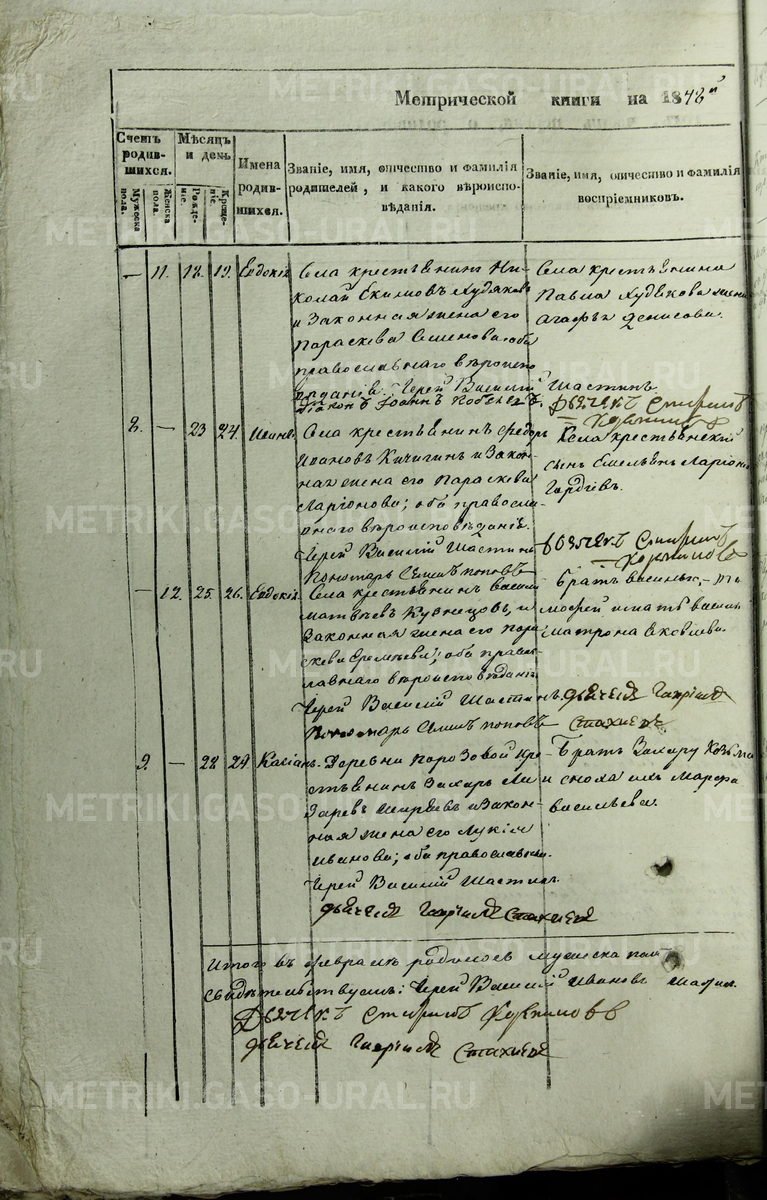 Метрической книги на 1848й
Счетъ родившихся.
Мужеска пола.
Женска пола.
Мѣсяцъ и день
Рожденіе.
Крещеніе.
Имена родившихся.
Званіе, имя, отчество и фамилія родителей, и какого вѣроисповѣданія.
Званіе, имя, отчество и фамилія воспріемниковъ.
— 11. 18. 19. Евдокія
Села крестьянинъ Ни-
колай Екимовъ Худяковъ
и законная жена его
Параскева Семенова оба
православнаго вѣроиспо
вѣданія. Іерей Василій Шастинъ
Діаконъ Іоаннъ
Села крестьянина
Павла Худякова жена
Агафья Денисова.
Дьячекъ
8. — 23 24. Иванъ
Села крестьянинъ Федоръ
Ивановъ Кичигинъ и закон-
ная жена его Параскева
Ларіонова; оба правосла-
внаго вѣроисповѣданія.
Іерей Василій Шастинъ
Пономарь Поповъ
Села крестьянскій
сынъ Емельянъ Ларіоновъ
Гордѣевъ.
Дьячекъ
— 12. 25. 26. Евдокія
Села крестьянинъ Василій
Матвѣевъ Кузнецовъ, и
законная жена его Пара-
скева Еремѣева; оба правос-
лавнаго вѣроисповѣданія
Іерей Василій Шастинъ
Пономарь Поповъ
Братъ Васильи, Ти-
мофей и мать Васил.
Матрона Яковлева.
дьячекъ Гавріилъ
Стахіевъ
9. — 28 29. Касіанъ.
Деревни Порозовой кре-
стьянинъ Захаръ Ла-
заревъ и закон-
ная жена его Лукія
Иванова; оба православн.
Іерей Василій Шастинъ
дьячекъ Гавріилъ Стахіевъ
Братъ Захару Козьма
и сноха имъ Марфа
Васильева.
Итого въ Февралѣ родилось мужеска пола
свидѣтельствуемъ: Іерей Василій Ивановъ Шастин.
Дьячекъ
дьячекъ Гавріилъ Стахіевъ
METRIKI.GASO-URAL.RU